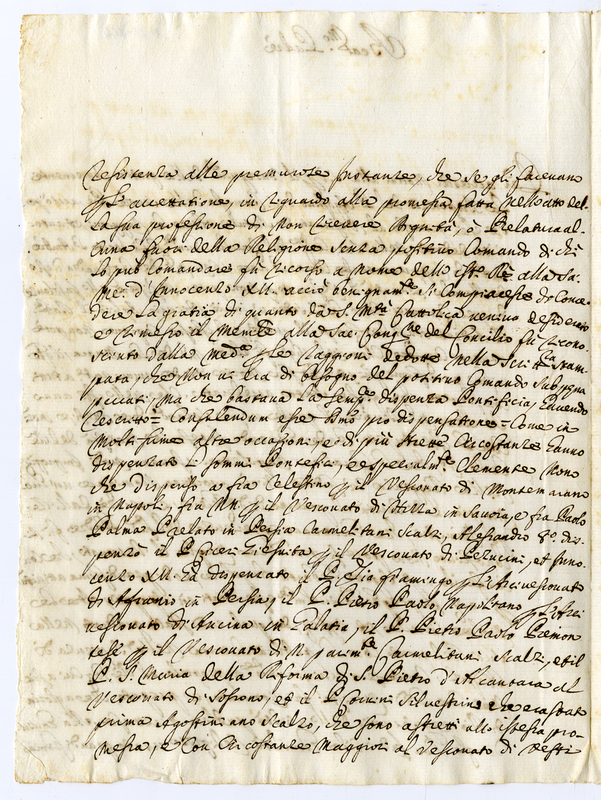 resistenza alle premurose Instanze, che se gli facevano
p l'accettatione, in riguardo alla promessa fatta nell'atto del-
la sua professione di Non ricevere Dignità, ò Prelatura al-
cuna fuori della Religione senza positivo Comando di chi
lo può Comandare fù ricorso a Nome dell' alla Sa:
Me: d'Innocenzo XII. acciò benignam.te si Compiacesse di Conce-
dere la gratia di quanto da S. M.tà Cattolica veniva desiderato
e rimesso il Mem.le alla Sac: Cong.ne del Concilio fù ricono-
sciuto dalla Med.a p le raggioni dedotte nella Scitt.ra stam-
pata, che Non vi era di bisogno del positivo Comando sub pęna
peccati, ma che bastava la semp.e dispenza Pontificia, havendo
rescritto = Consulendum esse SSmo pro dispensatione = Come in
Moltissime altre occasioni, e di più strette Circostanze hanno
dispenzato i sommi Pontefici, e especialm.te Clemente Nono
che dispensò a fra Celestino p il Vescovato di Montemarano
in Napoli, fra NN p il Vescovato di in Savoia, e fra Paolo
Palma Prelato in Persia Carmelitani Scalzi, Alessandro 8.o dis-
penzò il P. Giesuita p il Vescovato di et Inno-
cenzo XII. hà dispenzato il P. Elia fiamingo p l'Arcivescovato
di in Persia, il P. Pietro Paolo Napolitano p l'Arci
vescovato di Ancira in Galatia, il P. Pietro Paolo Piemon
tese p il Vescovato di Carmelitani Scalzi, et il
P. S. Maria della Riforma di S. Pietro d'Alcantara al
Vescovato di et il P. Silvestrino che era stato
prima Agostiniano Scalzo, che sono astretti allo istessa pro-
messa, e Con Circostanze Maggiori al Vescovato di